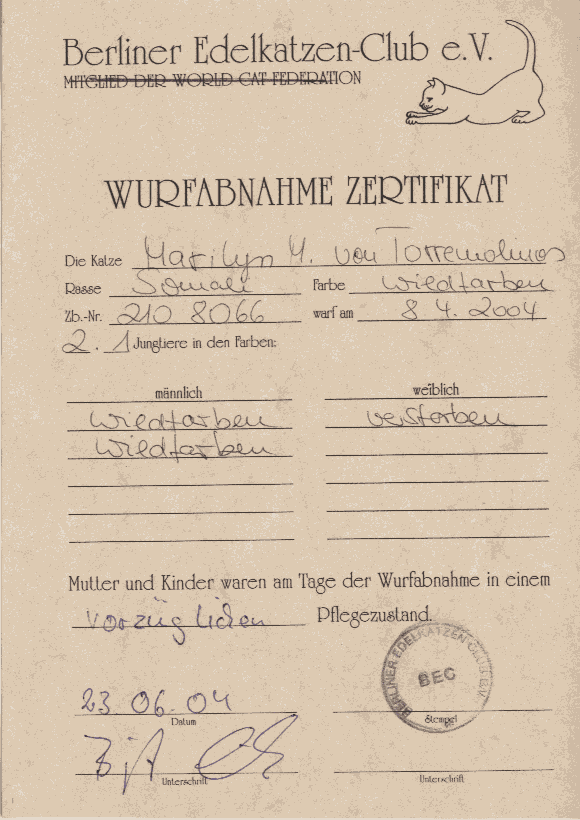 Berliner Edelkatzen-Club e.V.
MITGLIED DER WORLD CAT FEDERATION
WURFABNAHME ZERTIFIKAT
Die Katze Marilyn M. von Torremolinos
Rasse Somali Farbe wildfarben
Zb.-Nr. 210 8066 warf am 8 4. 2004
2. 1 Jungtiere in den Farben:
männlich weiblich
wildfarben verstorben
wildfarben
Mutter und Kinder waren am Tage der Wurfabnahme in einem
vorzüglichen Pflegezustand.
BERLINER EDELKATZEN-CLUB E.V.
BEC
23. 06. 04
Datum Stempel
Unterschrift Unterschrift